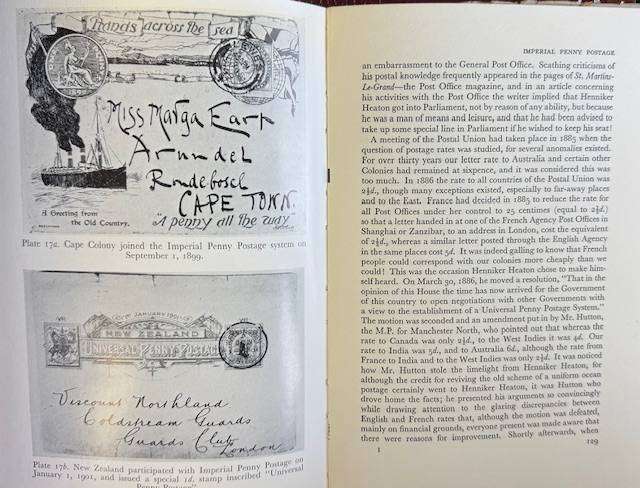 Hands across the sea
1899
Miss Marga Earp
Arundel
Rondebosch
CAPE TOWN.
A Greeting from
the Old Country.
"A penny all the way
Plate 17a. Cape Colony joined the Imperial Penny Postage system on
September 1, 1899.
JANUARY 1901
NEW ZEALAND
UNIVERSAL PENNY POSTAGE
Viscount Northland
Coldstream Guards
Guards Club
London
Plate 17b. New Zealand participated with Imperial Penny Postage on
January 1, 1901, and issued a special 1d. stamp inscribed "Universal
Penny Postage"
IMPERIAL PENNY POSTAGE
an embarrassment to the General Post Office. Scathing criticisms of
his postal knowledge frequently appeared in the pages of St. Martins-
Le-Grand—the Post Office magazine, and in an article concerning
his activities with the Post Office the writer implied that Henniker
Heaton got into Parliament, not by reason of any ability, but because
he was a man of means and leisure, and that he had been advised to
take up some special line in Parliament if he wished to keep his seat!
A meeting of the Postal Union had taken place in 1885 when the
question of postage rates was studied, for several anomalies existed.
For over thirty years our letter rate to Australia and certain other
Colonies had remained at sixpence, and it was considered this was
too much. In 1886 the rate to all countries of the Postal Union was
2½d., though many exceptions existed, especially to far-away places
and to the East. France had decided in 1885 to reduce the rate for
all Post Offices under her control to 25 centimes (equal to 2½d.)
so that a letter handed in at one of the French Agency Post Offices in
Shanghai or Zanzibar, to an address in London, cost the equivalent
of 2½d., whereas a similar letter posted through the English Agency
in the same places cost 5d. It was indeed galling to know that French
people could correspond with our colonies more cheaply than we
could! This was the occasion Henniker Heaton chose to make him-
self heard. On March 30, 1886, he moved a resolution, "That in the
opinion of this House the time has now arrived for the Government
of this country to open negotiations with other Governments with
a view to the establishment of a Universal Penny Postage System."
The motion was seconded and an amendment put in by Mr. Hutton,
the M.P. for Manchester North, who pointed out that whereas the
rate to Canada was only 2½d., to the West Indies it was 4d. Our
rate to India was 5d., and to Australia 6d., although the rate from
France to India and to the West Indies was only 2½d. It was noticed
how Mr. Hutton stole the limelight from Henniker Heaton, for
although the credit for reviving the old scheme of a uniform ocean
postage certainly went to Henniker Heaton, it was Hutton who
drove home the facts; he presented his arguments so convincingly
while drawing attention to the glaring discrepancies between
English and French rates that, although the motion was defeated,
mainly on financial grounds, everyone present was made aware that
there were reasons for improvement. Shortly afterwards, when
I
129